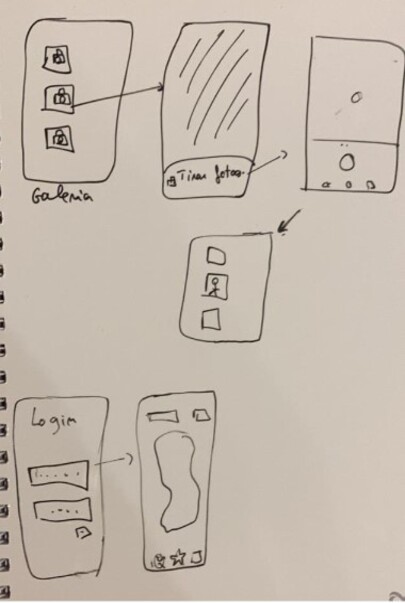 Galeria
Tirar fotos.
Login